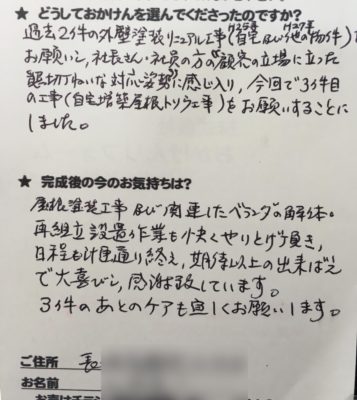 ★ どうしておかけんを選んでくださったのですか？
過去2件の外壁塗装リニューアル工事(自宅及び他の物件)を
H25年 H27年
お願いし、社長さん・社員の方の"顧客の立場に立った
懇切ていねいな対応姿勢に感じ入り、今回で3件目
の工事(自宅増築屋根、トソウ工事)をお願いすることに
しました。
★ 完成後の今のお気持ちは？
屋根塗装工事及び関連したベランダの解体・
再組立設置作業も快くやりとげて頂き、
日程も計画通り終え、期待以上の出来ばえ
で大喜びし、感謝致しています。
3件のあとのケアも宜しくお願いします。
ご住所 長
お名前